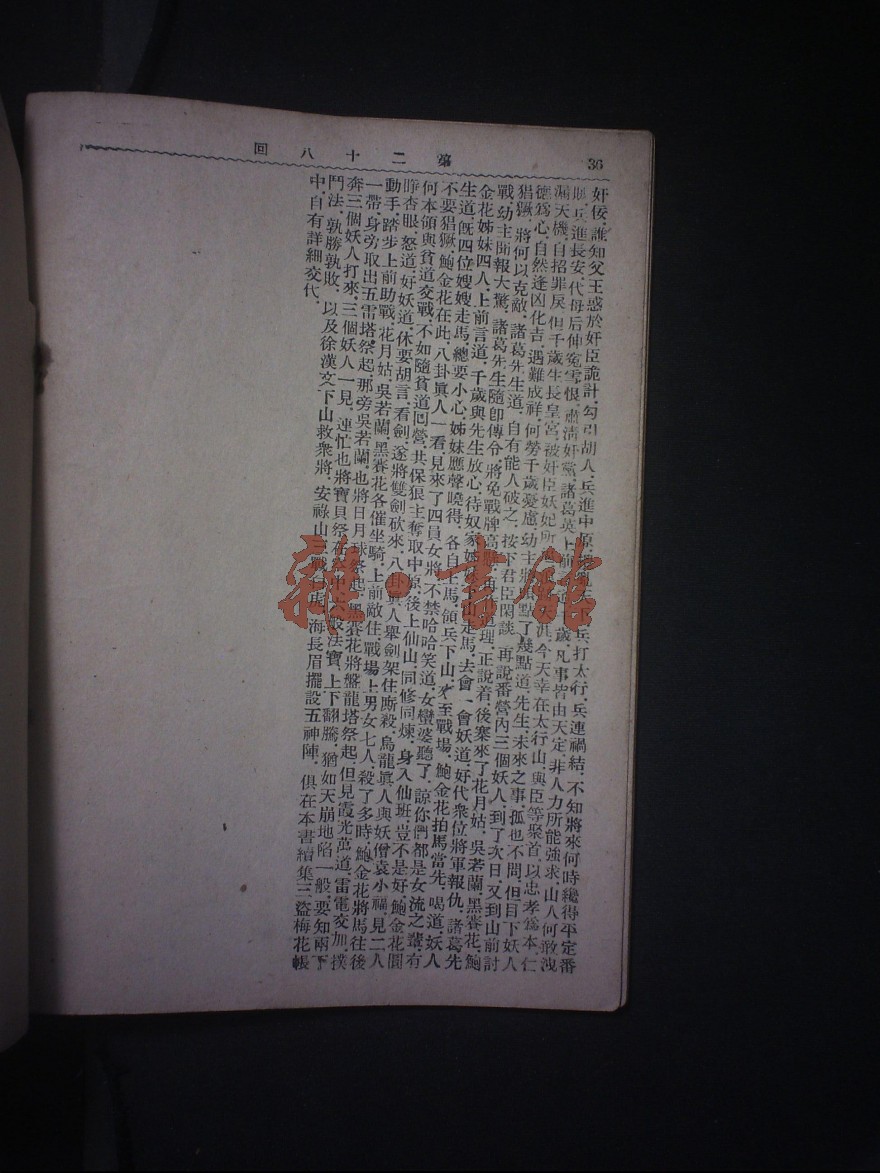 36
第二十八回
奸佞，誰知父王惑於奸臣詭計，勾引胡人，兵進中原，兵打太行，兵連禍結，不知將來何時纔得平定番
兵進長安，代母后伸寃雪恨，肅清奸黨，諸葛英上前歲，凡事皆由天定，非人力所能強求，山人何敢洩
漏天機，自招罪戾，但千歲生長皇宮，被奸臣妖妃所涯，今天幸在太行山，與臣等聚首，以忠孝爲本，仁
德爲心，自然逢凶化吉，遇難成祥，何勞千歲憂慮，幼主將點了幾點道，先生，未來之事，孤也不問，但目下妖人
猖獗，將何以克敵，諸葛先生道，自有能人破之，按下君臣閑談，再說番營內三個妖人，到了次日，又到山前討
戰，幼主聞報大驚，諸葛先生隨卽傳令，將免戰牌高理，正說着，後寨來了花月姑，吳若蘭，黑賽花，鮑
金花姊妹四人，上前言道，千歲與先生放心，待奴家姊山走馬，去會一會妖道，好代衆位將軍報仇，諸葛先
生道，旣四位嫂嫂走馬，總要小心，姊妹應聲曉得，各自上馬，領兵下山，來至戰場，鮑金花拍馬當先，喝道，妖人
不要猖獗，鮑金花在此，八卦眞人一看，見來了四員女將，不禁哈哈笑道，女蠻婆聽了，諒你們都是女流之輩，有
何本領與貧道交戰，不如隨貧道囘營，共保狼主奪取中原，後上仙山，同修同煉，身入仙班，豈不是好，鮑金花圓
睜杏眼，怒道，好妖道，休要胡言，看劍，遂將雙劍砍來，八卦眞人舉劍架住厮殺，烏龍眞人與妖僧袁小福，見二人
動手，踏步上前助戰，花月姑，吳若蘭，黑賽花各催坐騎，上前敵住，戰場上男女七人，殺了多時，鮑金花將馬往後
一帶，身旁取出五雷塔，祭起那旁吳若蘭，也將日月球祭起，黑賽花將盤龍塔祭起，但見霞光萬道，雷電交加，撲
奔三個妖人打來，三個妖人一見，連忙也將寶貝祭在般法寶，上下翻騰，猶如天崩地陷一般，要知兩下
鬥法，孰勝孰敗，以及徐漢文下山救衆將，安祿山三戰海長眉擺設五神陣，俱在本書續集三盜梅花帳
中，自有詳細交代，
雜·書館